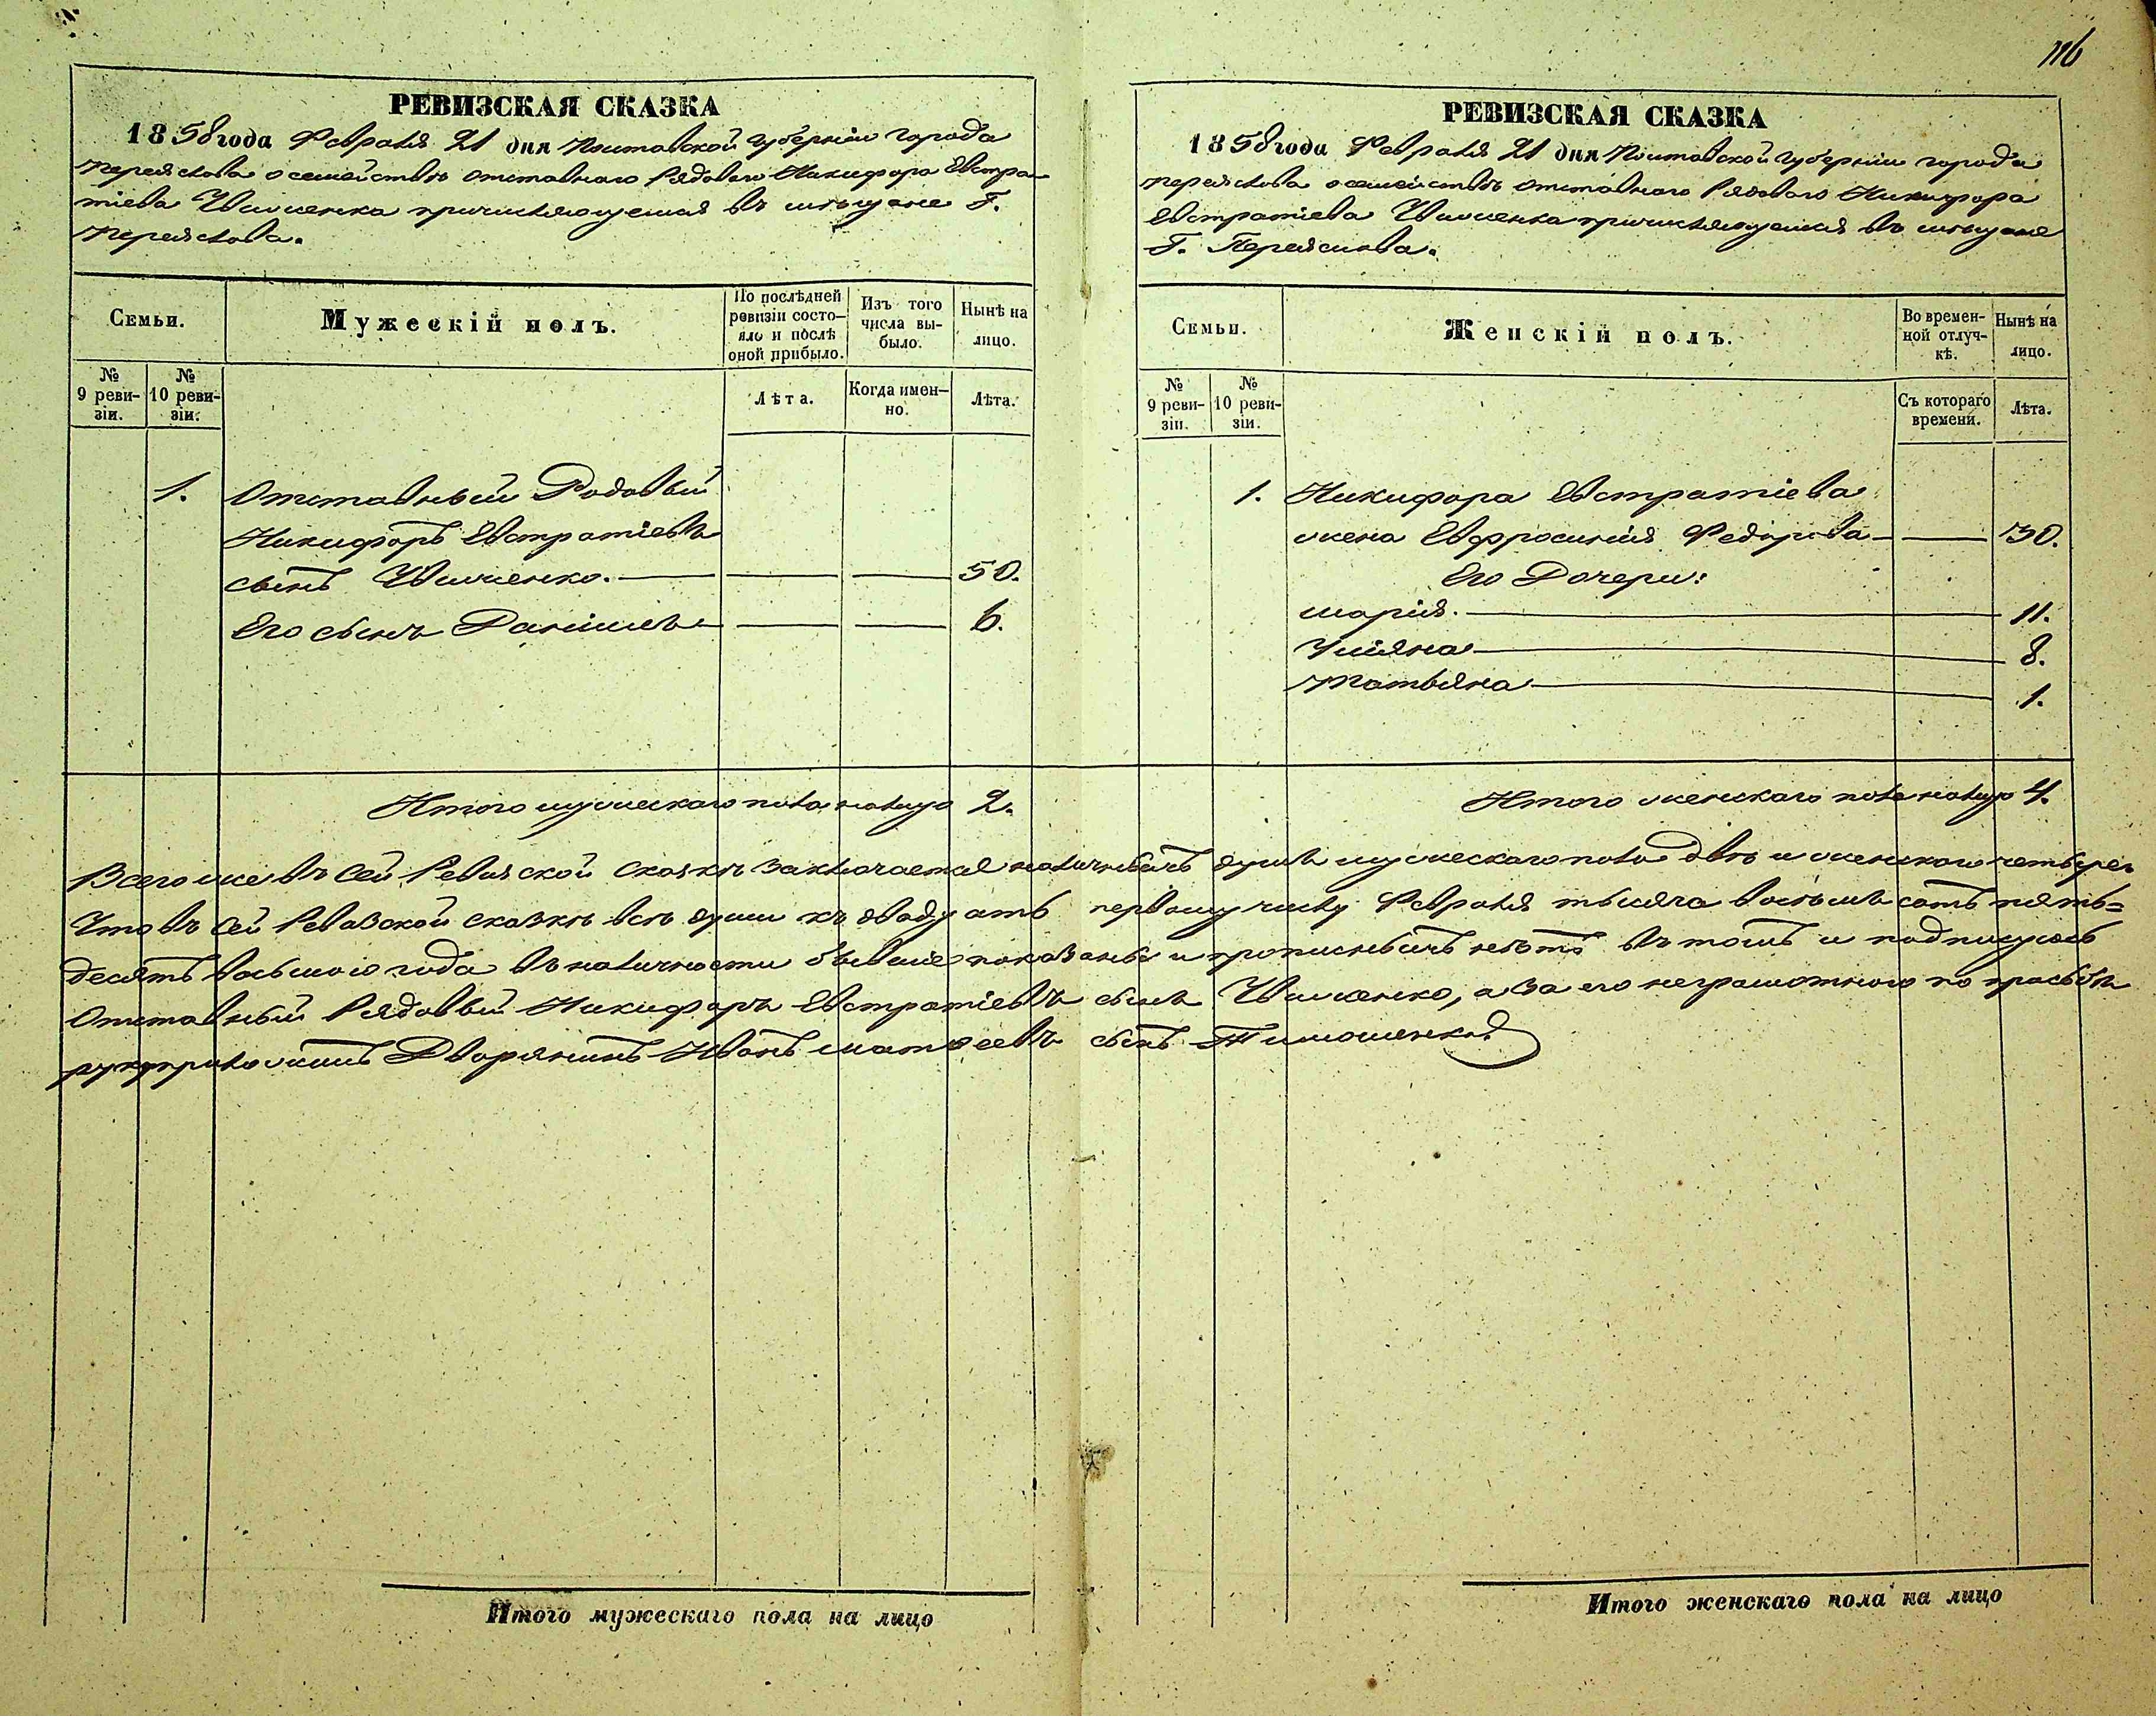 116
РЕВИЗСКАЯ СКАЗКА
1858 года Февраля 21 дня Полтавской Губерніи города
Переяслова о семействѣ отставнаго Рядоваго Никифора Евстра-
тіева причисляющемся въ мѣщане Г.
Переяслова.
Семьи.
Мужескій полъ.
По послѣдней ревизіи состо-
яло и послѣ оной прибыло.
Изъ того числа вы-
было.
Нынѣ на лицо.
№ 9 реви-
зіи.
№ 10 реви-
зіи.
Лѣта.
Когда имен-
но.
Лѣта.
1. Отставный Рядовый
Никифоръ Евстратіевъ
сынъ 50.
Его сынъ Даніилъ 6.
Итого мужескаго пола налицо 2.
РЕВИЗСКАЯ СКАЗКА
1858 года Февраля 21 дня Полтавской Губерніи города
Переяслова о семействѣ отставнаго Рядоваго Никифора
Евстратіева причисляющемся въ мѣщане
Г. Переяслова.
Семьи.
Женскій полъ.
Во времен-
ной отлуч-
кѣ.
Нынѣ на лицо.
№ 9 реви-
зіи.
№ 10 реви-
зіи.
Съ котораго времени.
Лѣта.
1. Никифора Евстратіева
жена Евфросинія Федорова 30.
Его Дочери:
Марія. 11.
Уліяна 8.
Татьяна 1.
Итого женскаго пола налицо 4.
Всего же въ сей Ревизской сказкѣ заключается наличныхъ душъ мужескаго пола двѣ и женскаго четыре.
Что въ сей Ревизской сказкѣ всѣ души къ двадцать первому числу Февраля тысяча восемь сотъ пять=
десятъ восьмого года въ наличности бывшіе показаны и прописныхъ нѣтъ въ томъ и подписуюсь
Отставный Рядовый Никифоръ Евстратіевъ сынъ а за его неграмотного по прозьбѣ
руку приложилъ Дворянинъ Иванъ Матвеевъ сынъ Тимошенко
Итого мужескаго пола на лицо
Итого женскаго пола на лицо